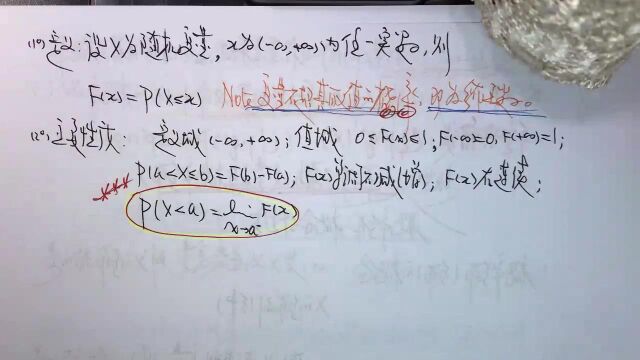 (1°) 定义: 设X为随机变量, x为(-∞,+∞)内任一实数, 则
F(x) = P(X≤x) Note 变量在 取值的概率, 即为
(2°) 性质: 定义域(-∞,+∞); 值域 0≤F(x)≤1, F(-∞)=0, F(+∞)=1;
P(a<X≤b)=F(b)-F(a); F(x)单调不减(增); F(x)右连续;
*** P(X<a) = lim F(x)
x→a⁻